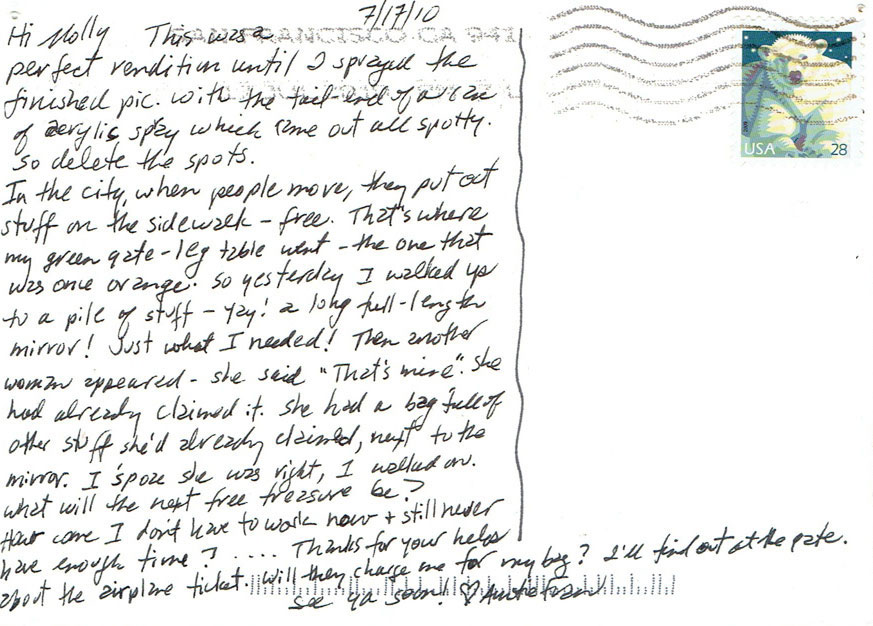 7/17/10
Hi Molly This was a
perfect rendition until I sprayed the
finished pic. with the tail-end of a can
of acrylic spray which came out all spotty.
So delete the spots.
In the city, when people move, they put out
stuff on the sidewalk - free. That's where
my green gate-leg table went - the one that
was once orange. So yesterday I walked up
to a pile of stuff - yay! a long full-length
mirror! Just what I needed! Then another
woman appeared - she said "That's mine". She
had already claimed it. She had a bag full of
other stuff she'd already claimed, next to the
mirror. I 'spose she was right, I walked on.
What will the next free treasure be?
How come I don't have to work now + still never
have enough time? .... Thanks for your help
about the airplane ticket. Will they charge me for my bag? I'll find out at the gate.
See ya soon! ♡ Auntie Fran
USA 28